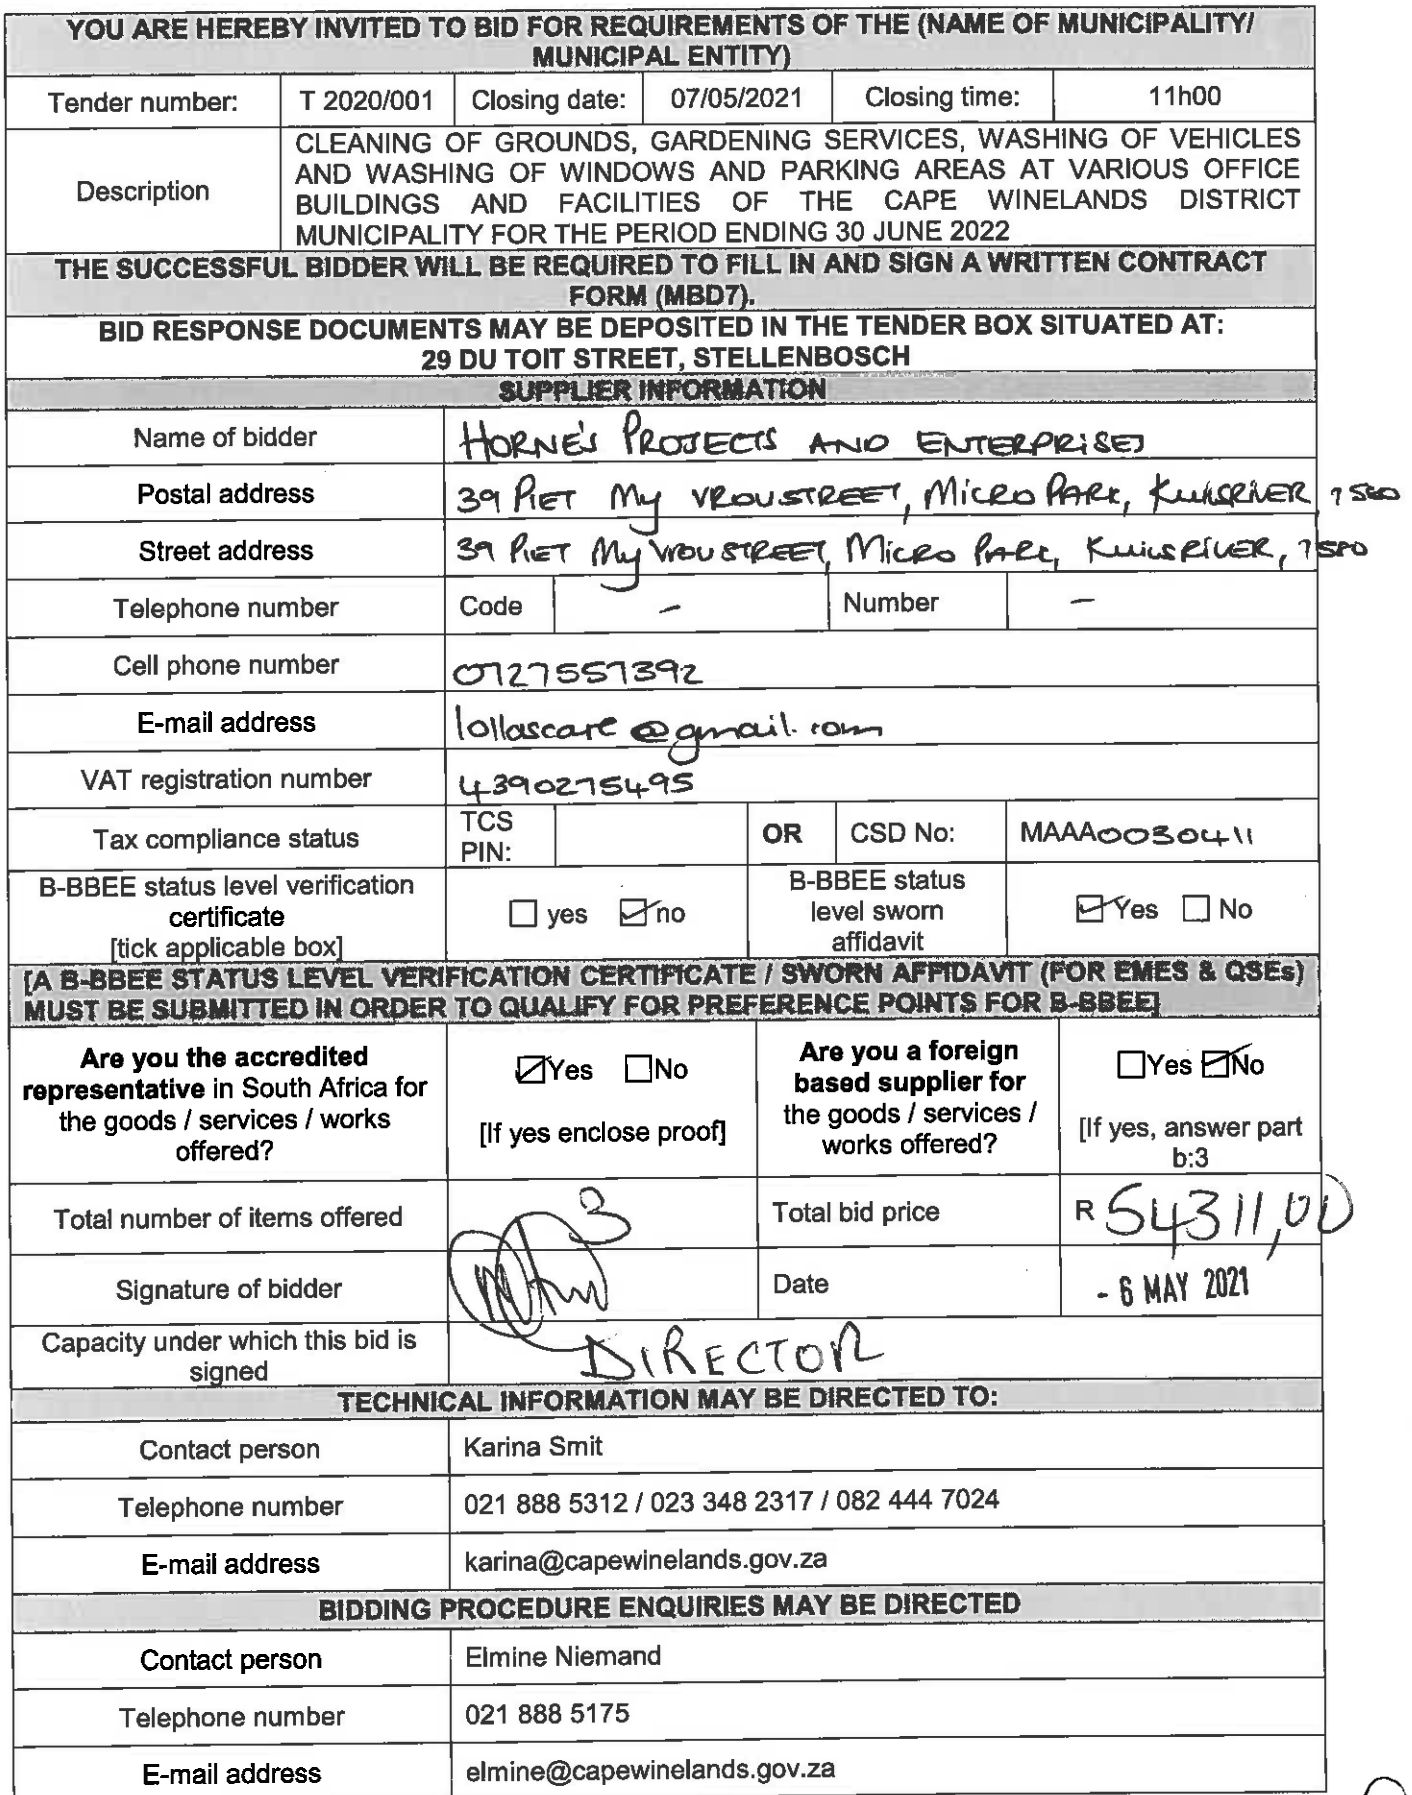 YOU ARE HEREBY INVITED TO BID FOR REQUIREMENTS OF THE (NAME OF MUNICIPALITY/
MUNICIPAL ENTITY)
Tender number: T 2020/001 Closing date: 07/05/2021 Closing time: 11h00
Description
CLEANING OF GROUNDS, GARDENING SERVICES, WASHING OF VEHICLES
AND WASHING OF WINDOWS AND PARKING AREAS AT VARIOUS OFFICE
BUILDINGS AND FACILITIES OF THE CAPE WINELANDS DISTRICT
MUNICIPALITY FOR THE PERIOD ENDING 30 JUNE 2022
THE SUCCESSFUL BIDDER WILL BE REQUIRED TO FILL IN AND SIGN A WRITTEN CONTRACT
FORM (MBD7).
BID RESPONSE DOCUMENTS MAY BE DEPOSITED IN THE TENDER BOX SITUATED AT:
29 DU TOIT STREET, STELLENBOSCH
SUPPLIER INFORMATION
Name of bidder HORNE'S PROJECTS AND ENTERPRISES
Postal address 39 PIET My VROUSTREET, MICRO PARK, KUILSRIVER 7580
Street address 39 PIET My VROUSTREET, MICRO PARK, KUILSRIVER, 7580
Telephone number Code - Number -
Cell phone number 0727557392
E-mail address lollascare@gmail.com
VAT registration number 4390275495
Tax compliance status TCS PIN: OR CSD No: MAAA0030411
B-BBEE status level verification
certificate
[tick applicable box]
yes no
B-BBEE status
level sworn
affidavit
Yes No
[A B-BBEE STATUS LEVEL VERIFICATION CERTIFICATE / SWORN AFFIDAVIT (FOR EMES & QSEs)
MUST BE SUBMITTED IN ORDER TO QUALIFY FOR PREFERENCE POINTS FOR B-BBEE]
Are you the accredited
representative in South Africa for
the goods / services / works
offered?
Yes No
[If yes enclose proof]
Are you a foreign
based supplier for
the goods / services /
works offered?
Yes No
[If yes, answer part
b:3
Total number of items offered 3 Total bid price R 54311,00
Signature of bidder Date - 6 MAY 2021
Capacity under which this bid is
signed
DIRECTOR
TECHNICAL INFORMATION MAY BE DIRECTED TO:
Contact person Karina Smit
Telephone number 021 888 5312 / 023 348 2317 / 082 444 7024
E-mail address karina@capewinelands.gov.za
BIDDING PROCEDURE ENQUIRIES MAY BE DIRECTED
Contact person Elmine Niemand
Telephone number 021 888 5175
E-mail address elmine@capewinelands.gov.za